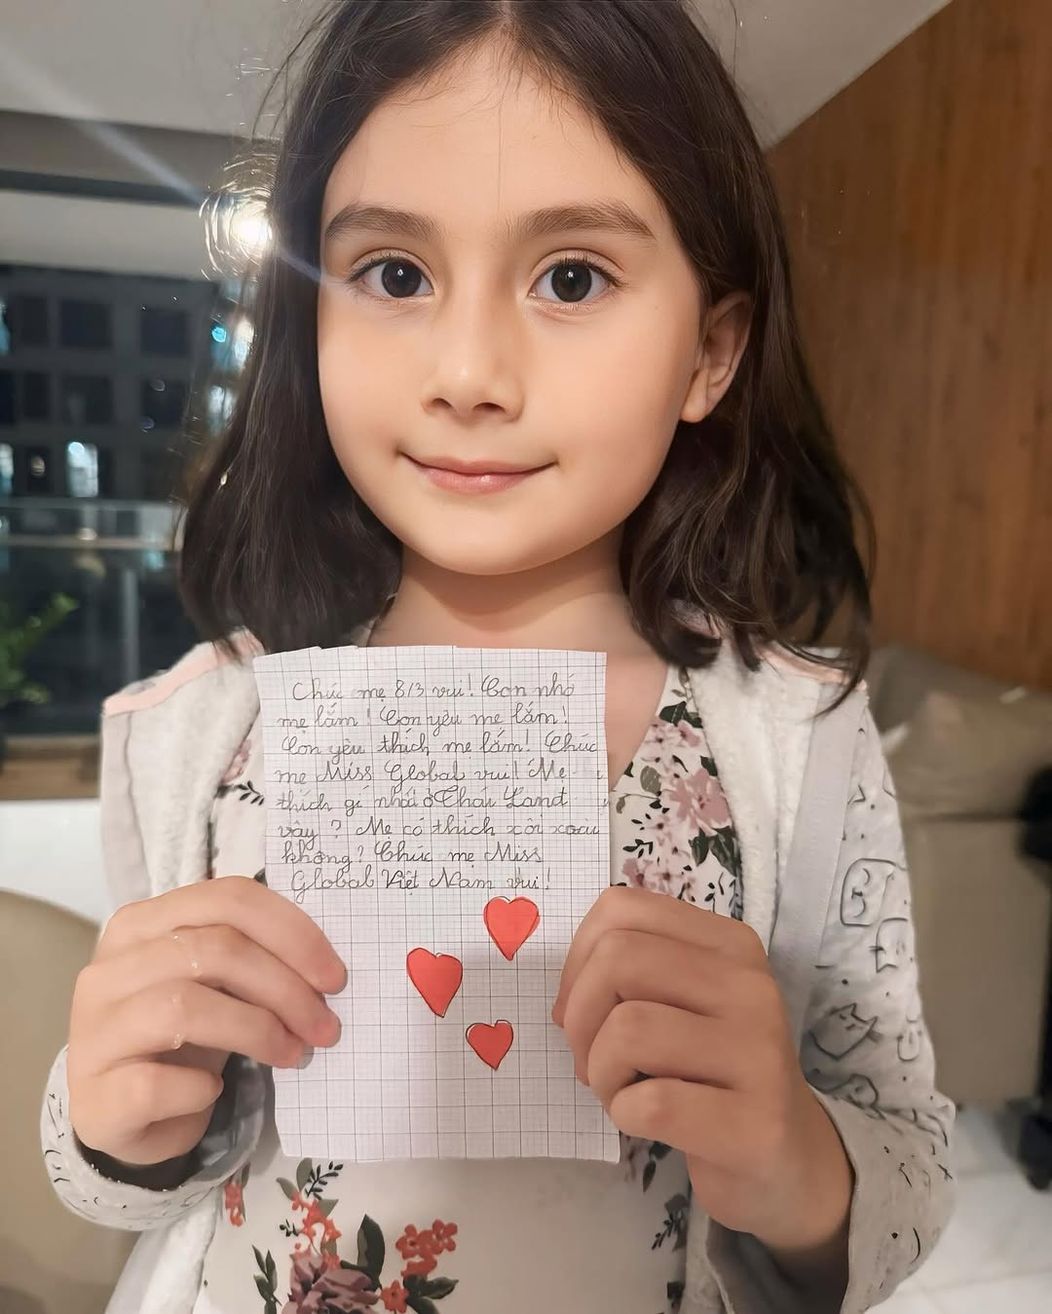 Chúc mẹ 8/3 vui! Con nhớ
mẹ lắm! Con yêu mẹ lắm!
Con yêu thích mẹ lắm! Chúc
mẹ Miss Global vui! Mẹ
thích gì nhất ở Thái Land
vậy? Mẹ có thích xôi xoài
không? Chúc mẹ Miss
Global Việt Nam vui!